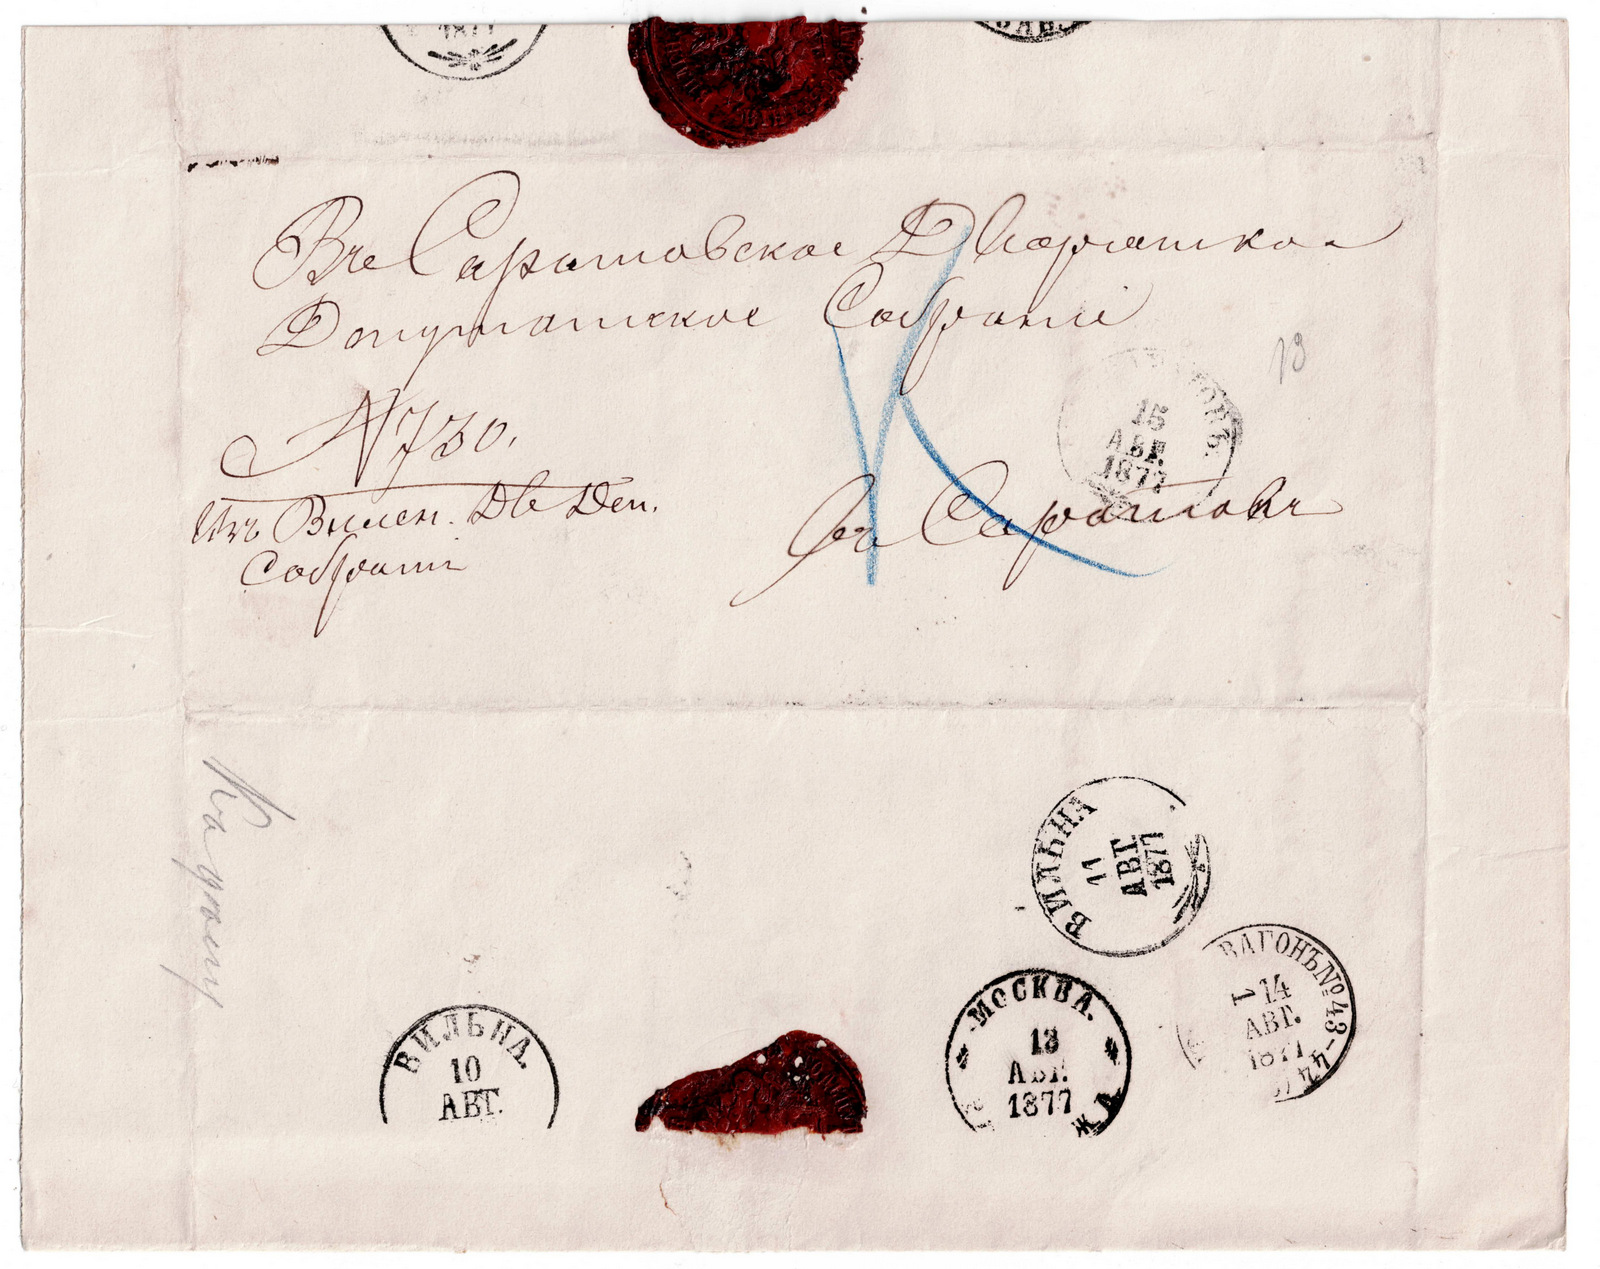 1877
Въ Саратовское Дворянское
Депутатское Собраніе
19
№ 730.
15
АВГ.
1877
Изъ Вилен. Дв Деп.
Собранія
въ Саратовъ
ВИЛЬНА
11
АВГ.
1877
ВАГОНЪ № 43-44
14
1
АВГ.
1877
МОСКВА.
13
АВГ.
1877
ВИЛЬНА.
10
АВГ.